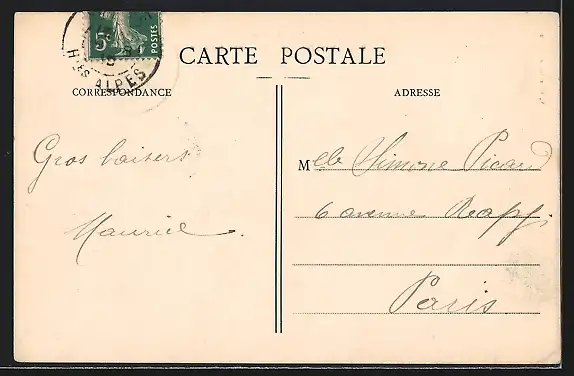 5c
POSTES
Htes ALPES
CARTE POSTALE
CORRESPONDANCE
ADRESSE
Gros baisers
Maurice.
Melle Simone Picard
6 avenue
Paris.